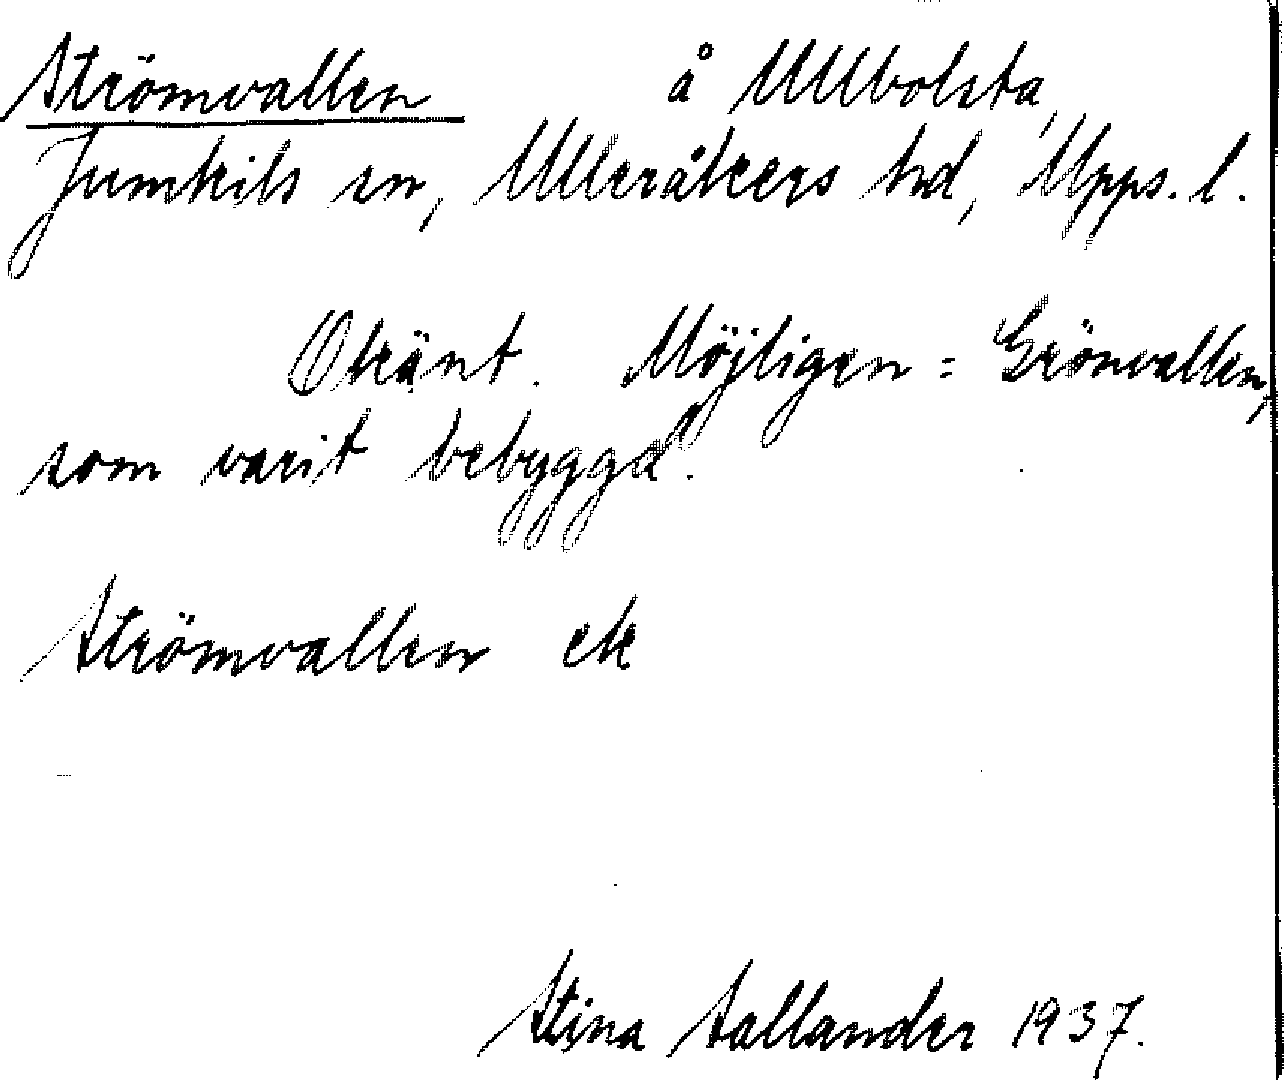 Strömvallen å Ullbolsta,
Jumkils sn, Ulleråkers hd, Upps. l.
Okänt. Möjligen = Grönvallen,
som varit bebyggd.
Strömvallen ek
Stina Sallander 1937.